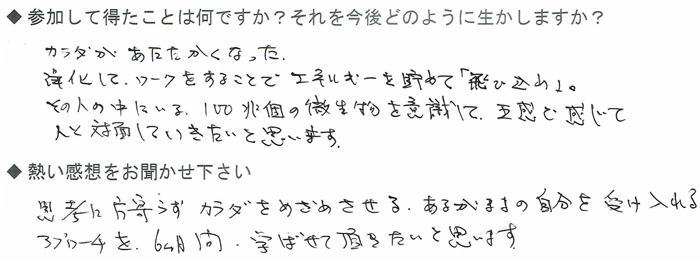 ◆ 参加して得たことは何ですか？それを今後どのように生かしますか？
カラダが あたたかくなった.
浄化して、ワークをすることで エネルギーを貯めて「飛び込め」。
その人の中にいる、100兆個の微生物を意識して、五感で感じて
人と対面していきたいと思います.
◆ 熱い感想をお聞かせ下さい
思考に片寄らず カラダをめざめさせる、あるがままの自分を受け入れる
アプローチを、6ヶ月間、学ばせて頂きたいと思います.